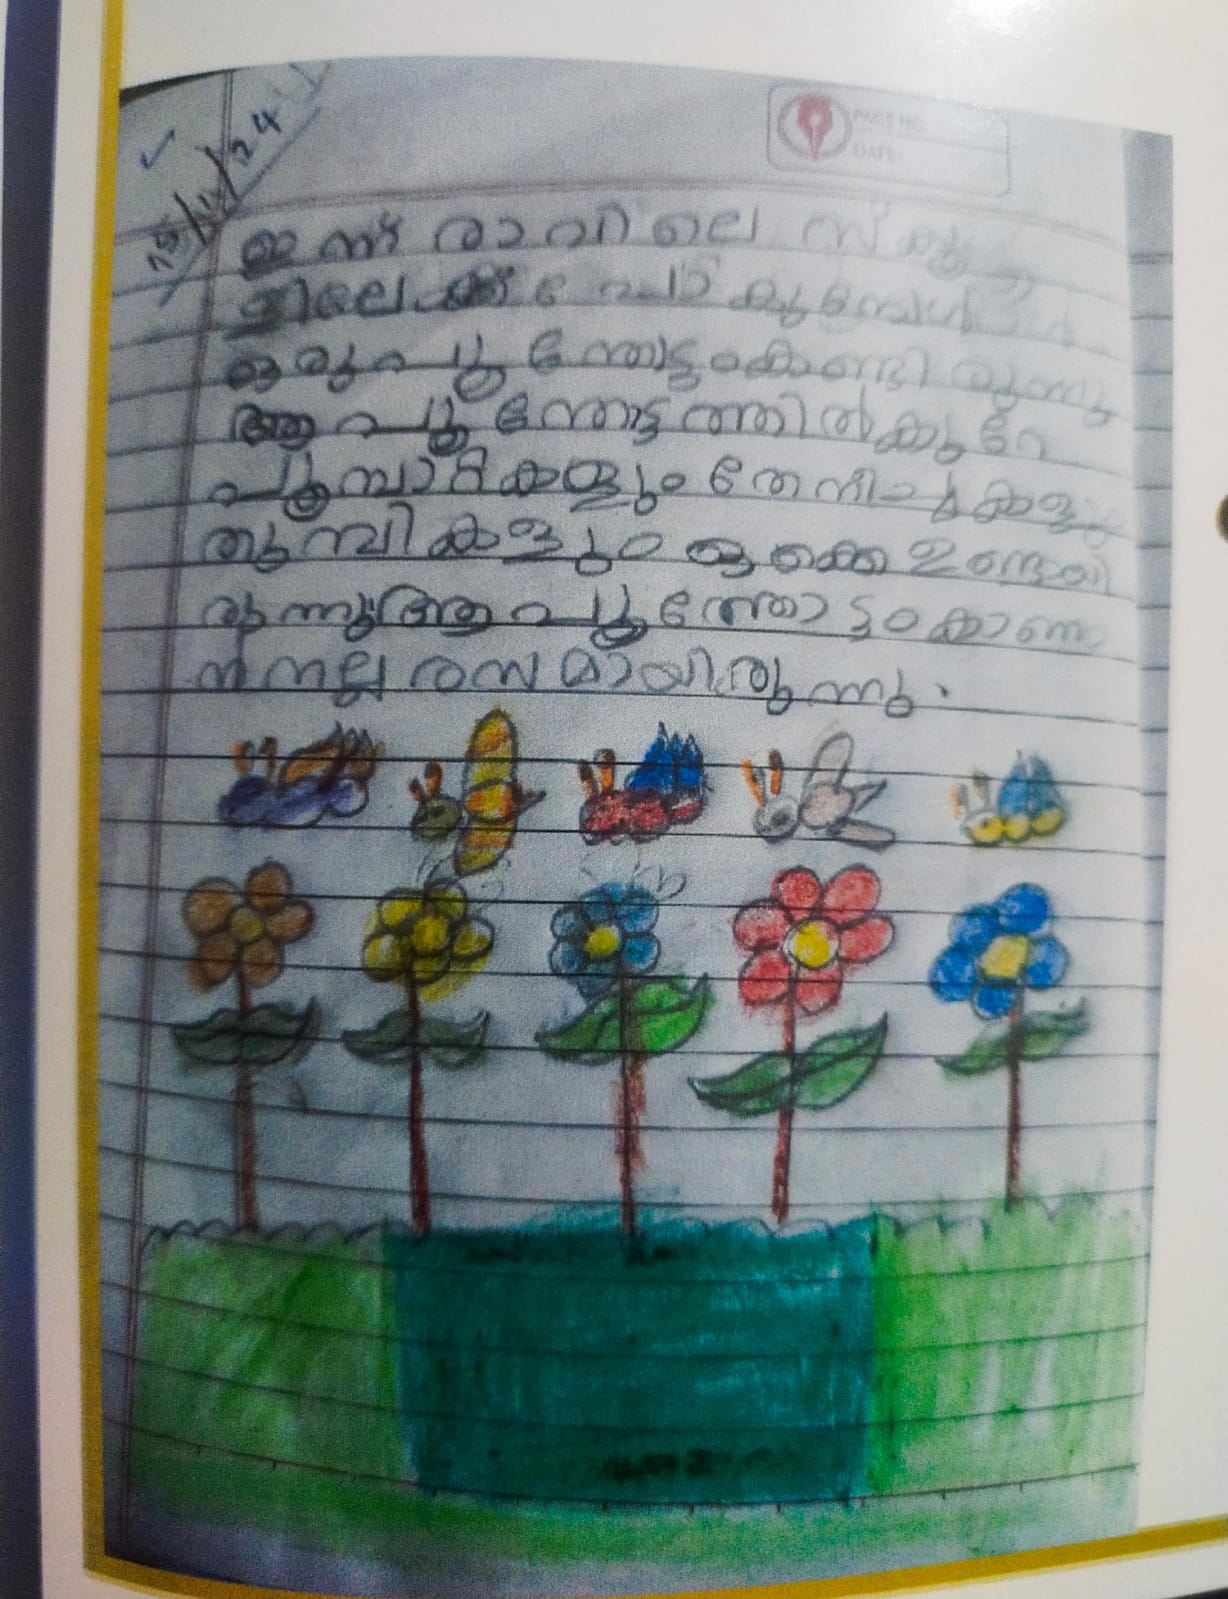 15/11/24
PAGE NO.
DATE:
ഇന്ന് രാവിലെ സ്കൂ
ളിലേക്ക് പോകുമ്പോൾ
ഒരു പൂന്തോട്ടം കണ്ടിരുന്നു
ആ പൂന്തോട്ടത്തിൽ കുറേ
പൂമ്പാറ്റകളും തേനീച്ചകളും
തുമ്പികളും ഒക്കെ ഉണ്ടായി
രുന്നു ആ പൂന്തോട്ടം കാണാ
ൻ നല്ല രസമായിരുന്നു.